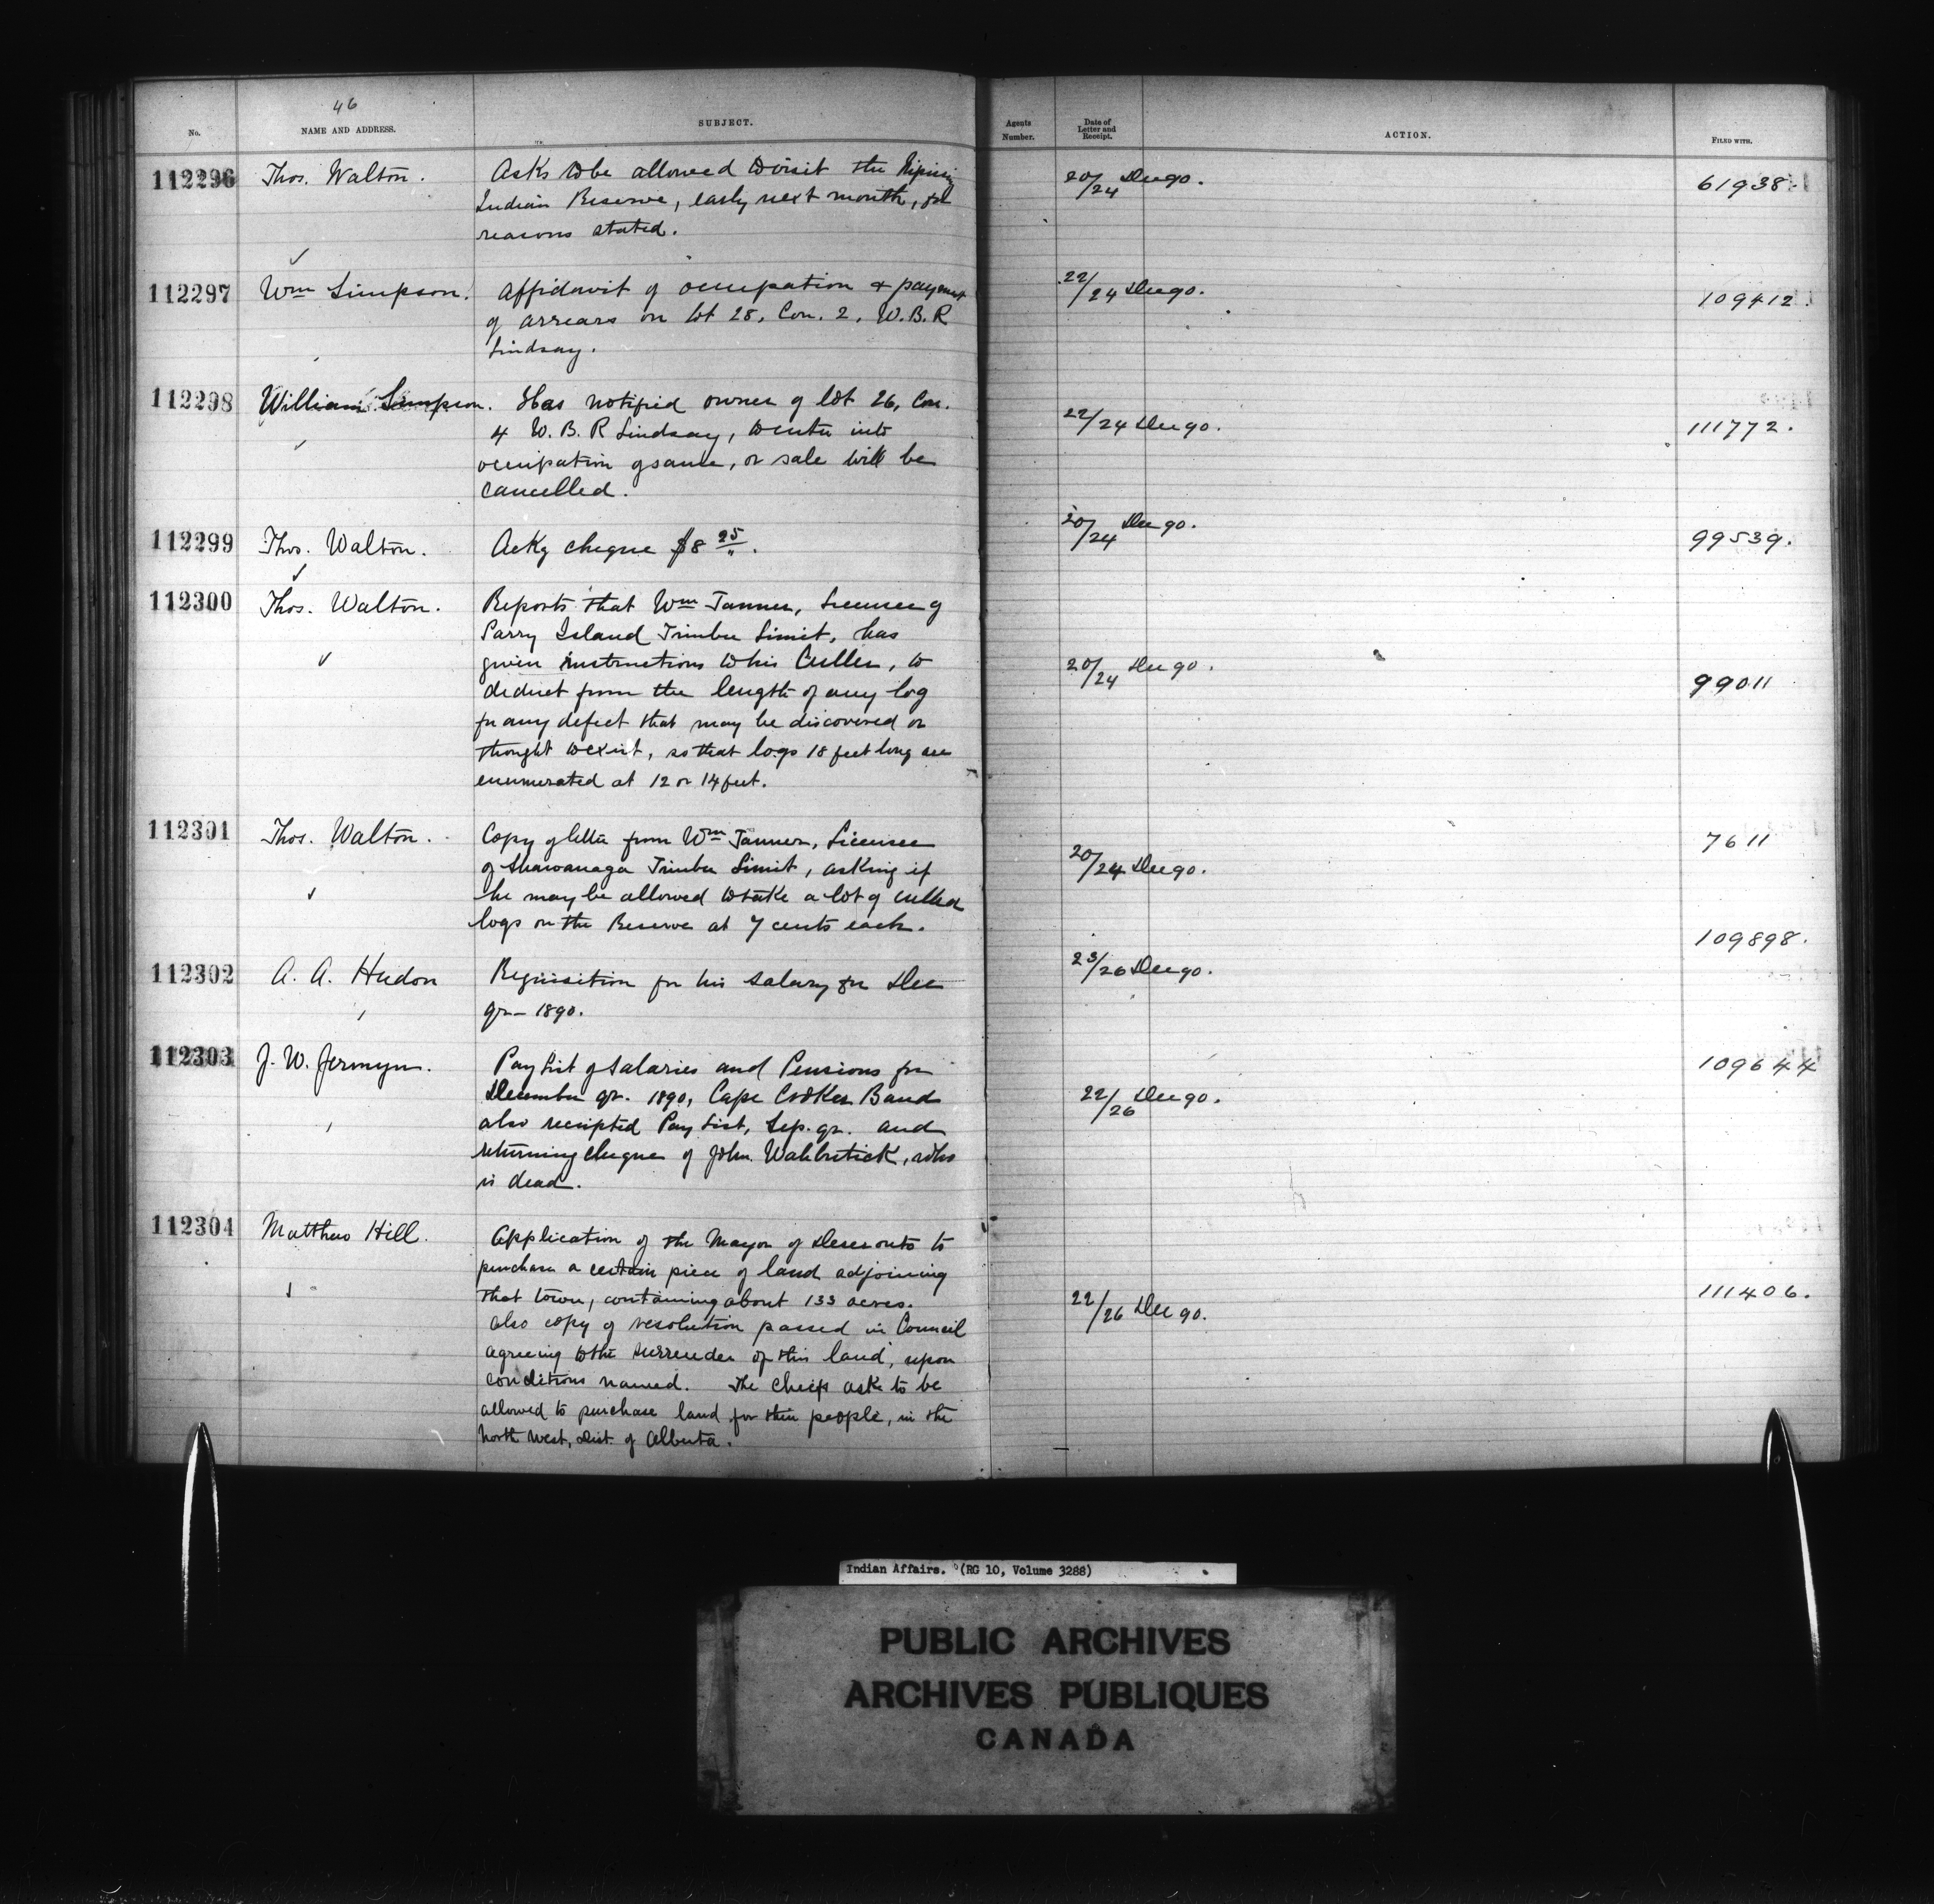 46
No.
NAME AND ADDRESS.
SUBJECT.
Agents Number.
Date of Letter and Receipt.
ACTION.
FILED WITH.
112296 Thos. Walton. Asks to be allowed to visit the Nipissing 20/24 Dec 90. 61938.
Indian Reserve, early next month, for
reasons stated.
112297 Wm Simpson. Affidavit of occupation & payment 22/24 Dec 90. 109412.
of arrears on lot 28, Con. 2, W.B.R
Lindsay.
112298 William Simpson. Has notified owner of lot 26, Con. 22/24 Dec 90. 111772.
4 W. B. R Lindsay, to enter into
occupation of same, or sale will be
cancelled.
112299 Thos. Walton. Ackg cheque $8 25. 20/24 Dec 90. 99539.
112300 Thos. Walton. Reports that Wm Tanner, Licensee of
Parry Island Timber Limit, has
given instructions to his Culler, to 20/24 Dec 90. 99011
deduct from the length of any log
for any defect that may be discovered or
thought to exist, so that logs 18 feet long are
enumerated at 12 or 14 feet.
112301 Thos. Walton. Copy of letter from Wm Tanner, Licensee 20/24 Dec 90. 7611
of Shawanaga Timber Limit, asking if
he may be allowed to take a lot of culled
logs on the Reserve at 7 cents each.
112302 A. A. Hudon Requisition for his salary for Dec 23/26 Dec 90. 109898.
qr- 1890.
112303 J. W. Jermyn. Pay List of Salaries and Pensions for 22/26 Dec 90. 109644
December qr. 1890, Cape Croker Band
also receipted Pay List, Sep. qr. and
returning cheque of John Wahbutick, who
is dead.
112304 Matthew Hill. Application of the Mayor of Deseronto to
purchase a certain piece of land adjoining
that town, containing about 133 acres. 22/26 Dec 90. 111406.
also copy of resolution passed in Council
agreeing to the surrender of this land, upon
conditions named. The Cheifs ask to be
allowed to purchase land for their people, in the
North West, Dist. of Alberta.
Indian Affairs. (RG 10, Volume 3288)
PUBLIC ARCHIVES
ARCHIVES PUBLIQUES
CANADA